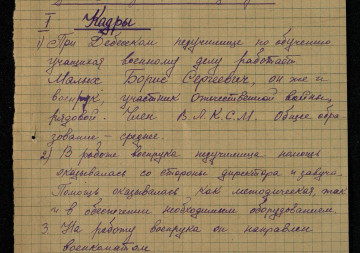 I Кадры
1) При Дебёсском педучилище по обучению
учащихся военному делу работает
Малых Борис Сергеевич, он же и
военрук, участник Отечественной войны,
рядовой. Член В.Л.К.С.М. Общее обра
зование – среднее.
2) В работе военрука педучилища помощь
оказывалась со стороны директора и завуча.
Помощь оказывалась как методическая, так
и в обеспечении необходимым оборудованием.
3. На работу военрука он направлен
военкоматом